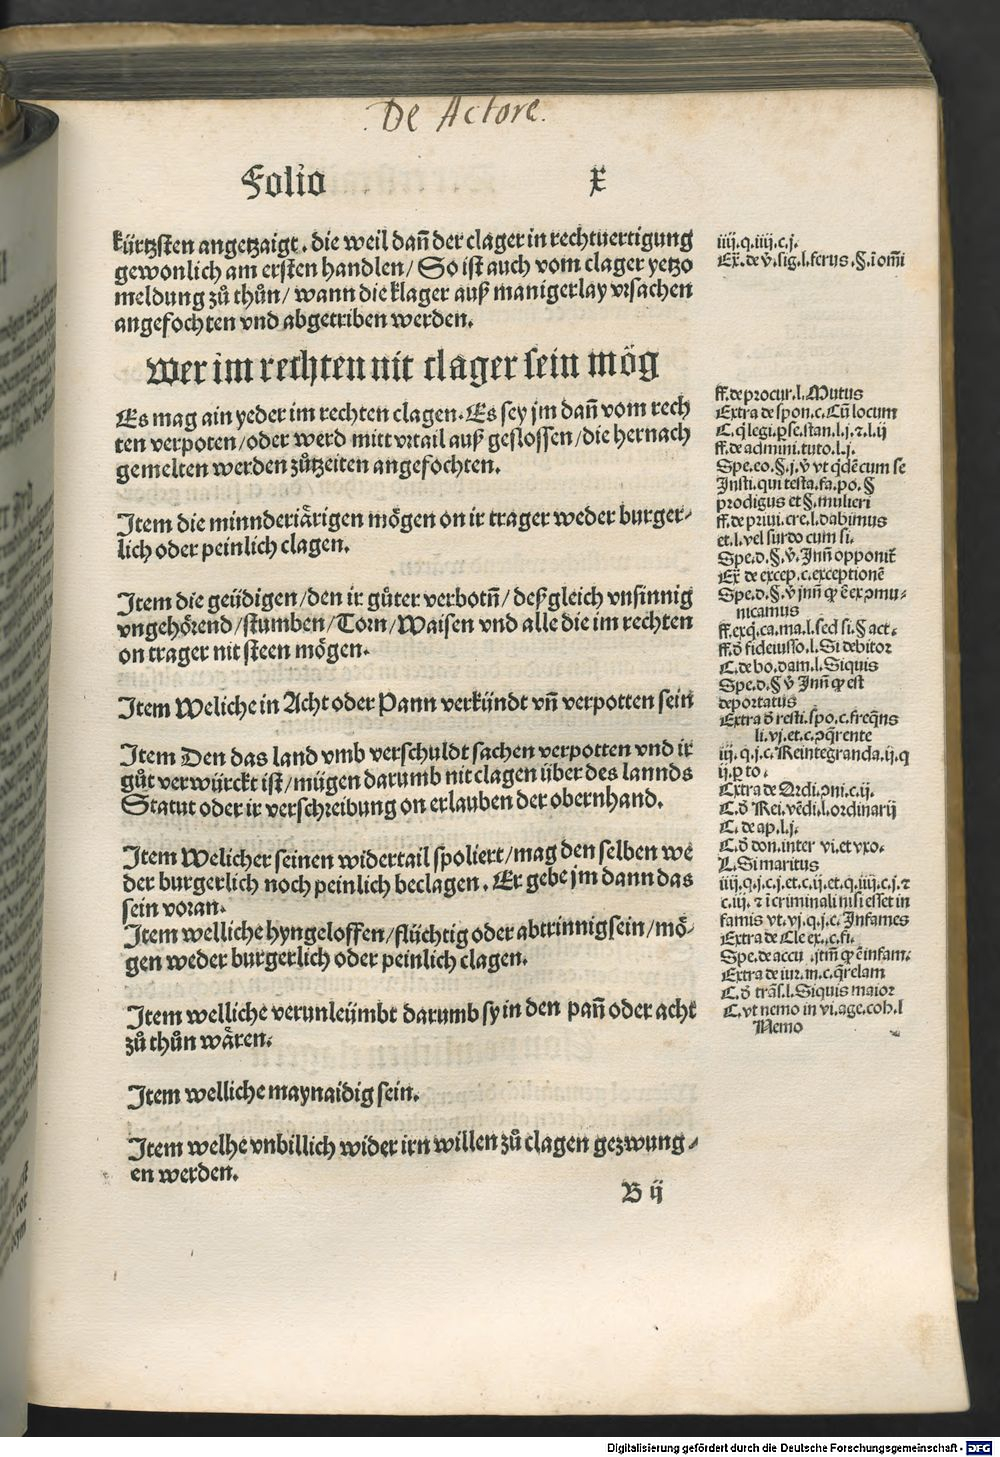 De Actore.
Folio x
kürtzsten angetzaigt. die weil dañ der clager in rechtuertigung
gewonlich am ersten handlen/ So ist auch vom clager yetzo
meldung zů thůn/ wann die klager auß manigerlay vrsachen
angefochten vnd abgetriben werden.
Wer im rechten nit clager sein mög
Es mag ain yeder im rechten clagen. Es sey jm dañ vom rech
ten verpoten/ oder werd mitt vrtail auß geslossen/ die hernach
gemelten werden zůtzeiten angefochten.
Item die minnderiärigen mögen on ir trager weder burger⸗
lich oder peinlich clagen.
Item die geüdigen/ den ir gůter verbotñ/ deßgleich vnsinnig
vngehörend/ stumben/ Torn/ Waisen vnd alle die im rechten
on trager nit steen mögen.
Item Weliche in Acht oder Pann verkündt vñ verpotten sein
Item Den das land vmb verschuldt sachen verpotten vnd ir
gůt verwürckt ist/ mügen darumb nit clagen über des lannds
Statut oder ir verschreibung on erlauben der obernhand.
Item Welicher seinen widertail spoliert/ mag den selben we
der burgerlich noch peinlich beclagen. Er gebe jm dann das
sein voran.
Item welliche hyngeloffen/ flüchtig oder abtrinnig sein/ mö⸗
gen weder burgerlich oder peinlich clagen.
Item welliche verunleümbt darumb sy in den pañ oder acht
zů thůn wären.
Item welliche maynaidig sein.
Item welhe vnbillich wider irn willen zů clagen gezwung⸗
en werden.
B ij
iiij. q. iiij. c. j.
Ex̃. de v̓. sig. l. ferus. §. ī om̃i
ff. de procur. l. Mutus
Extra de spon. c. Cũ locum
C. q̃ legi. ꝑse. stan. l. j. ⁊. l. ij
ff. de admini. tuto. l. j.
Spe. eo. §. j. v̓ vt q̇dẽ cum se
Insti. qui testa. fa. po. §
prodigus et §. mulieri
ff. de priui. cre. l. dabimus
et. l. vel surdo cum si.
Spe. d. §. v̓. Inñ opponit̃
Ex̃ de excep. c. exceptionẽ
Spe. d. §. v̓ jnñ ꝙ ẽ exꝯmu⸗
nicamus
ff. exq̃. ca. ma. l. sed si. § act.
ff. ð fideiusso. l. Si debitor
C. de bo. dam. l. Siquis
Spe. d. § v̓ Inñ ꝙ est
deportatus
Extra ð resti. spo. c. freq̃ns
li. vj. et. c. ꝯq̃rente
iij. q. j. c. Reintegranda. ij. q
ij. ꝑ to.
Extra de Ardi. ꝯni. c. ij.
C. ð Rei. vẽdi. l. ordinarij
C. de ap. l. j.
C. ð don. inter vi. et vxo.
L. Si maritus
iiij. q. j. c. j. et. c. ij. et. q. iiij. c. j. ⁊
c. iij. ⁊ ī criminali nisi esset in
famis vt. vj. q. j. c. Infames
Extra de Cle ex. c. fi.
Spe. de accu . jtm̃ ꝙ ẽ infam.
Extra de iur. in. c. q̃relam
C. ð trãs. l. Siquis maior
C. vt nemo in vi. age. coh. l
Nemo
Digitalisierung gefördert durch die Deutsche Forschungsgemeinschaft - DFG